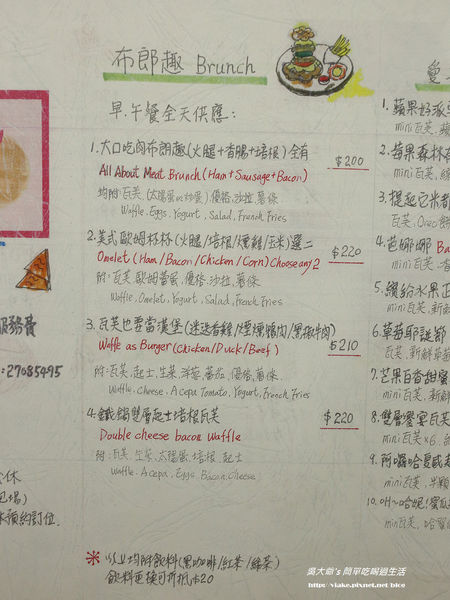 布郎趣 Brunch
早.午餐全天供應:
1.大口吃肉布朗趣(火腿+香腸+培根)全有
$200
All About Meat Brunch (Ham+Sausage+Bacon)
均附:瓦芙.(太陽蛋or炒蛋)優格.沙拉.薯條
Waffle, Eggs, Yogurt, Salad, French Fries
2.美式歐姆杯杯(火腿/培根/燻雞/玉米)選二
$220
Omelet (Ham/Bacon/Chicken/Corn) Choose any 2
附:瓦芙.歐姆蕾蛋.優格.沙拉.薯條
Waffle, Omelet, Yogurt, Salad, French Fries
3.瓦芙也要當漢堡(迷迭香雞/煙燻鴨肉/黑椒牛肉)
$210
Waffle as Burger (Chicken/Duck/Beef)
附:瓦芙.起士.生菜.洋蔥.蕃茄.優格.薯條
Waffle, Cheese, A cepa Tomato, Yogurt, French Fries
4.鐵鍋雙層起士培根瓦芙
$220
Double cheese bacon Waffle
附:瓦芙.生菜.太陽蛋.培根.起士
Waffle, A cepa, Eggs, Bacon, Cheese
※以上均附飲料(黑咖啡/紅茶/綠茶)
飲料更換可折抵$20
服務費
:27085495
休
包場)
預約訂位.
1.蘋果好派
mini瓦芙.蘋
2.莓果森林
mini瓦芙.
3.提起它來
瓦芙.Oreo餅
4.芭娜娜 Ba
mini瓦芙.
5.繽紛水果
mini瓦芙.新鮮
6.草莓耶誕
瓦芙.新鮮草莓
7.芒果百香甜蜜
mini瓦芙.新鮮
8.雙層饗宴瓦芙
mini瓦芙×6.
9.阿囉哈夏威
mini瓦芙.
10.
mini瓦芙.哈蜜
吳大爺's 簡單吃喝過生活
http://viake.pixnet.net/blog